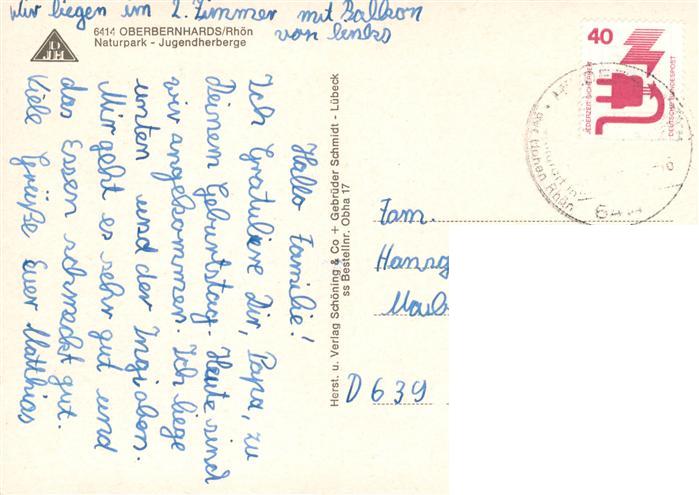 Wir liegen im 2. Zimmer mit Balkon
von links
DJH
6414 OBERBERNHARDS/Rhön
Naturpark - Jugendherberge
Hallo Familie!
Ich Gratuliere Dir, Papa, zu
Deinem Geburtstag. Heute sind
wir angekommen. Ich liege
unten und der Ingi oben.
Mir geht es sehr gut und
das Essen schmeckt gut.
Viele Grüße Euer Matthias
Herst. u. Verlag Schöning & Co + Gebrüder Schmidt - Lübeck
ss Bestellnr. Obha 17
40
JEDERZEIT SICHERHEIT
DEUTSCHE BUNDESPOST
der Hohen Rhön
641
Fam.
Hansg
D 639